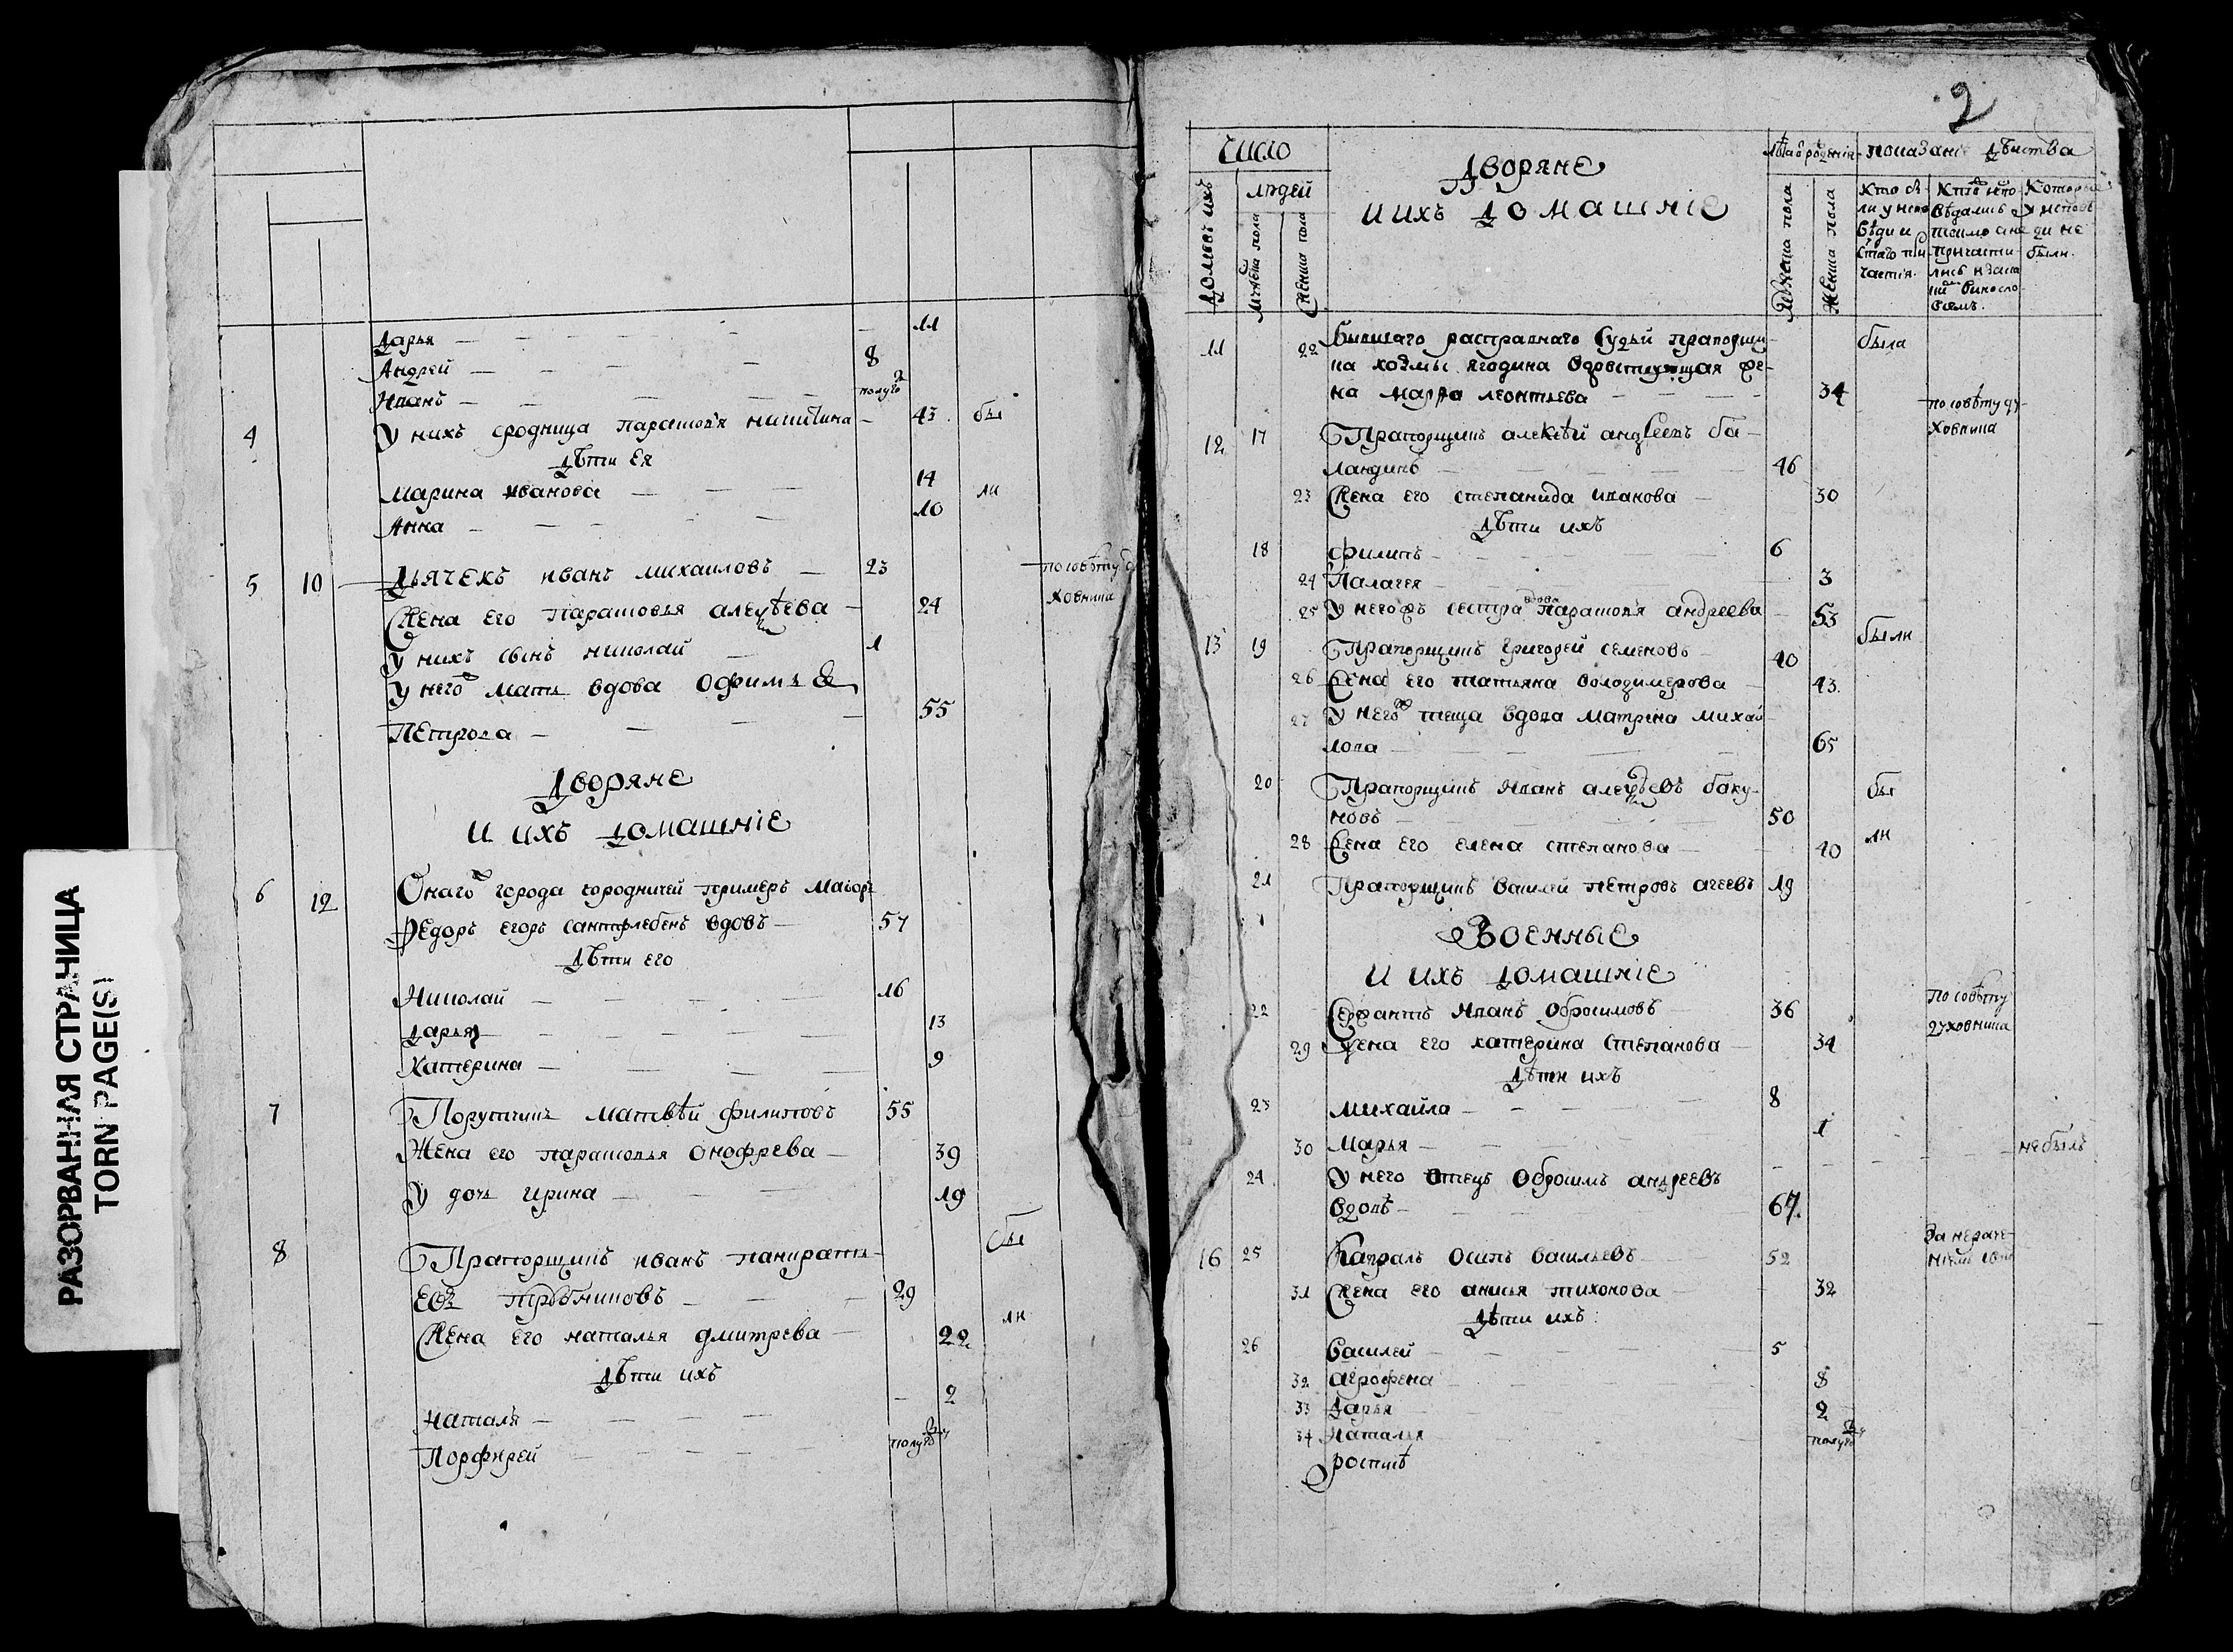 РАЗОРВАННАЯ СТРАНИЦА
TORN PAGE(S)
Дарья 11
Андрей 8
Иванъ полуго
4 У нихъ сродница парасковья никитина 43 бы
Дѣти Ея
Марина иванова 14 ли
Анна 10
5 10 Дьячекъ иванъ михаиловъ 23 по совѣту д
Жена его парасковья алеѯѣева 24 ховника
У нихъ сынъ николай 1
У него мать вдова Офимья
Петрова 55
Дворяне
И ихъ домашніе
6 12 Онаго города городничей примеръ Маіоръ
Федоръ егоръ вдовъ 57
Дѣти его
Николай 16
Дарья 13
Катерина 9
7 Порутчикъ Матвѣй филиповъ 55
Жена его парасковья Онофрева 39
У дочь Ирина 19
8 Прапорщикъ иванъ панкратъ бы
евъ 29
Жена его наталья дмитрева 22 ли
Дѣти ихъ
Наталья 2
Порфирей полуго
2
Число Дворяне Лѣта показаніе дѣйства
людей и ихъ домашніе
Домовъ ихъ
Мужеска пола
Женска пола
Мужеска пола
Женска пола
Кто бы-
ли у испо-
вѣди и
стаго при-
частія.
Кто испо-
вѣдались
токмо а не
причасти-
лись и зака
кимъ виносло
вемъ.
Которые
у исповѣ-
ди не
были.
11 22 бывшаго расправнаго Судьи прапорщи была
ка козмы ягодина вдовствующая же-
на марѳа леонтьева 34
по совѣту ду-
ховника
12 17 Прапорщикъ алексѣй андреевъ ба-
ландинъ 46
23 Жена его степанида иванова 30
Дѣти ихъ
18 филипъ 6
24 Палагея 3
25 У негожъ сестра вдова парасковья андреева 53
были
13 19 Прапорщикъ григорей семеновъ 40
26 Жена его татьяна володимерова 43
27 У него теща вдова матрена михай
лова 65
20 Прапорщикъ иванъ алеѯѣевъ баку- бы
новъ 50
28 Жена его елена степанова 40 ли
21 Прапорщикъ василей петровъ агеевъ 19
Военные
И ихъ домашніе
22 Сержантъ иванъ Обросимовъ 36 по совѣту
духовника
29 Жена его катерина Степанова 34
Дѣти ихъ
23 михайла 8
30 Марья 1
не былъ
24 У него отецъ Обросимъ андреевъ
вдовъ 67
16 25 Капралъ Осипъ васильевъ 52 За нераче-
ніемъ
31 Жена его анисья тихонова 32
Дѣти ихъ
26 Василей 5
32 агрофена 8
33 Дарья 2
34 Наталья полуго
роспись